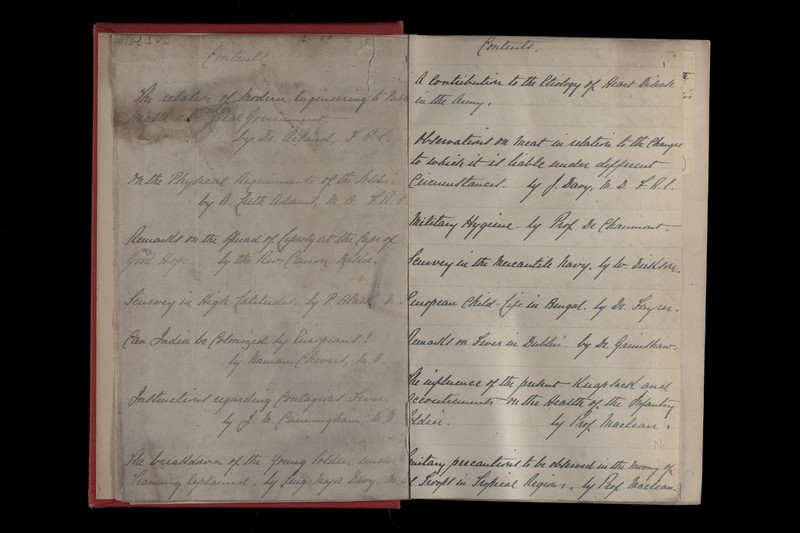 Vol 30.
Contents
The relation of Modern Engineering to Public
Health and Local Government
by Dr. Acland, F.R.S.
On the Physical Requirements of the Soldier
by A. Leith Adams, M.B. F.R.S.
Remarks on the Spread of Leprosy at the Cape of
Good Hope. by the Rev. Canon
Scurvey in High Latitudes. by P. Black, M.D.
Can India be Colonized by Europeans?
by Norman Chevers, M.D.
Instructions regarding Contagious Fever.
by J. M. Cunningham, M.D.
The breakdown of the Young Soldier under
Training Explained. by Surg. Major Davy, M.D.
Contents.
A Contribution to the Etiology of Heart Disease
in the Army.
Observations on Meat in relation to the Changes
to which it is liable under different
Circumstances. by J. Davy, M.D. F.R.S.
Military Hygiene. by Prof. De Chaumont.
Scurvey in the Mercantile Navy. by W. Dickson.
European Child-Life in Bengal. by Dr. Fayrer.
Remarks on Fever in Dublin. by Dr. Grimshaw.
The influence of the present Knapsack and
Accoutrements on the Health of the Infantry
Soldier. by Prof. Maclean.
Sanitary precautions to be observed in the moving of
Troops in Tropical Regions. by Prof. Maclean.